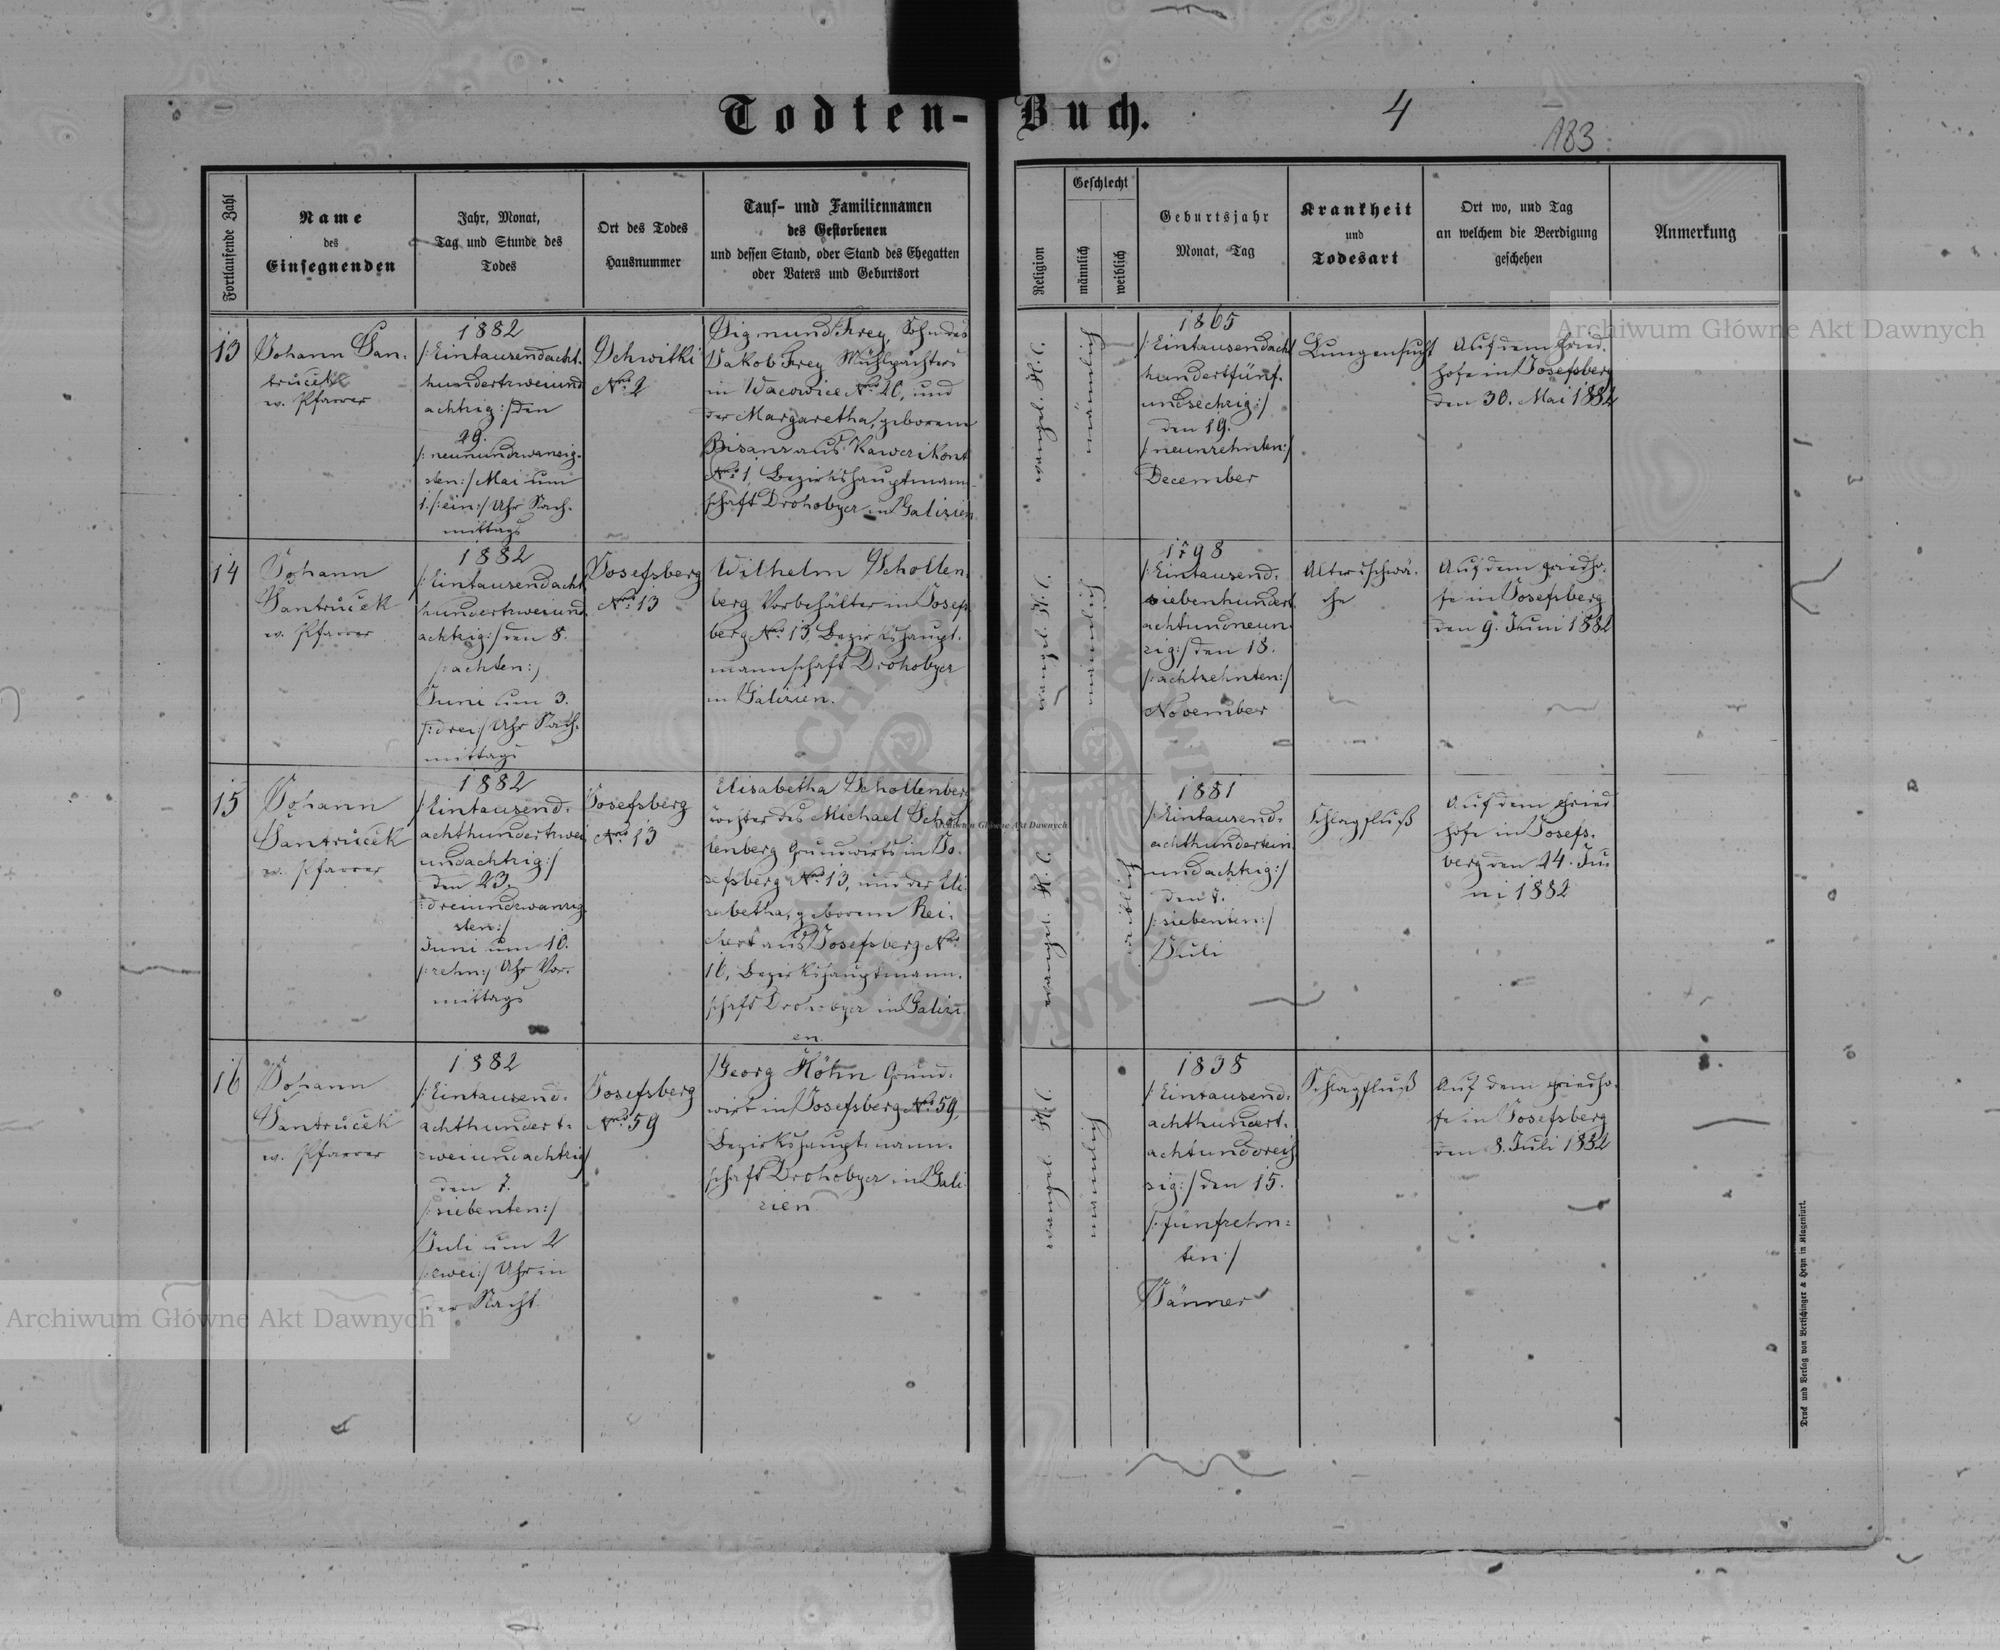 Todten-Buch.
4
183
Fortlaufende Zahl
Name
des
Einsegnenden
Jahr, Monat,
Tag und Stunde des
Todes
Ort des Todes
Hausnummer
Tauf- und Familiennamen
des Gestorbenen
und dessen Stand, oder Stand des Ehegatten
oder Vaters und Geburtsort
Religion
Geschlecht
männlich
weiblich
Geburtsjahr
Monat, Tag
Krankheit
und
Todesart
Ort wo, und Tag
an welchem die Beerdigung
geschehen
Anmerkung
13
Johann San-
truček
ev. Pfarrer
1882
/:Eintausendacht-
hundertzweiund
achtzig:/ den
29.
/:neunundzwanzig-
sten:/ Mai um
1./:ein:/ Uhr Nach-
mittags
Schwitki
Nro 2
Sigmund Frey, Sohn des
Jakob Frey Mühlpächters
in Wacowice Nro 26, und
der Margaretha, geborenen
Bisanz aus Kawczikont
Nro 1, Bezirkshauptmann-
schaft Drohobycz in Galizien
männlich
1865
/:Eintausendacht
hundertfünf-
undsechzig:/
den 19.
/:neunzehnten:/
December
Lungensucht
Auf dem Fried-
hofe in Josefsberg
den 30. Mai 1882
14
Johann
Santruček
ev. Pfarrer
1882
/:Eintausendacht
hundertzweiund
achtzig:/ den 8.
/:achten:/
Juni um 3.
/:drei:/ Uhr Nach-
mittags
Josefsberg
Nro 13
Wilhelm Schollen-
berg Vorbehälter in Josefs
berg Nro 13, Bezirkshaupt-
mannschaft Drohobycz
in Galizien.
männlich
1798
/:Eintausend-
siebenhundert
achtundneun-
zig:/ den 18.
/:achtzehnten:/
November
Altersschwä-
che
Auf dem Friedho-
fe in Josefsberg
den 9. Juni 1882
15
Johann
Santruček
ev. Pfarrer
1882
/:Eintausend-
achthundertzwei
undachtzig:/
den 23.
/:dreiundzwanzig
sten:/
Juni um 10.
/:zehn:/ Uhr Vor-
mittags
Josefsberg
Nro 13
Elisabetha Schollenberg
Tochter des Michael Schol
lenberg Grundwirts in Jo-
sefsberg Nro 13, und der Eli-
sabetha, geborenen Rei-
chert aus Josefsberg Nro
16, Bezirkshauptmann-
schaft Drohobycz in Galizi
en.
weiblich
1881
/:Eintausend-
achthundertein
undachtzig:/
den 7.
/:siebenten:/
Juli
Schlagfluß
Auf dem Fried
hofe in Josefs-
berg den 24. Ju-
ni 1882
16
Johann
Santruček
ev. Pfarrer
1882
/:Eintausend-
achthundert-
zweiundachtzig/
den 7.
/:siebenten:/
Juli um 2
/:zwei:/ Uhr in
der Nacht
Josefsberg
Nro 59
Georg Höhn Grund-
wirt in Josefsberg Nro 59,
Bezirkshauptmann-
schaft Drohobycz in Gali
zien
männlich
1838
/:Eintausend-
achthundert-
achtunddreis
sig:/ den 15.
/:fünfzehn-
ten:/
Jänner
Schlagfluß
Auf dem Friedho-
fe in Josefsberg
den 8. Juli 1882
Druck und Verlag von Bertschinger & Heyn in Klagenfurt.
Archiwum Główne Akt Dawnych
Archiwum Główne Akt Dawnych
Archiwum Główne Akt Dawnych